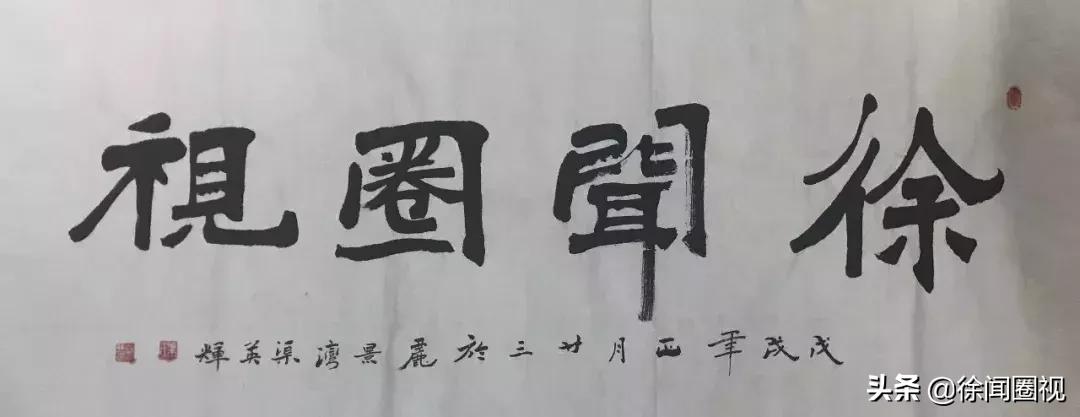 徐聞圈視
戊戌年正月廿三於麗景灣渠英煇
头条 @徐闻圈视